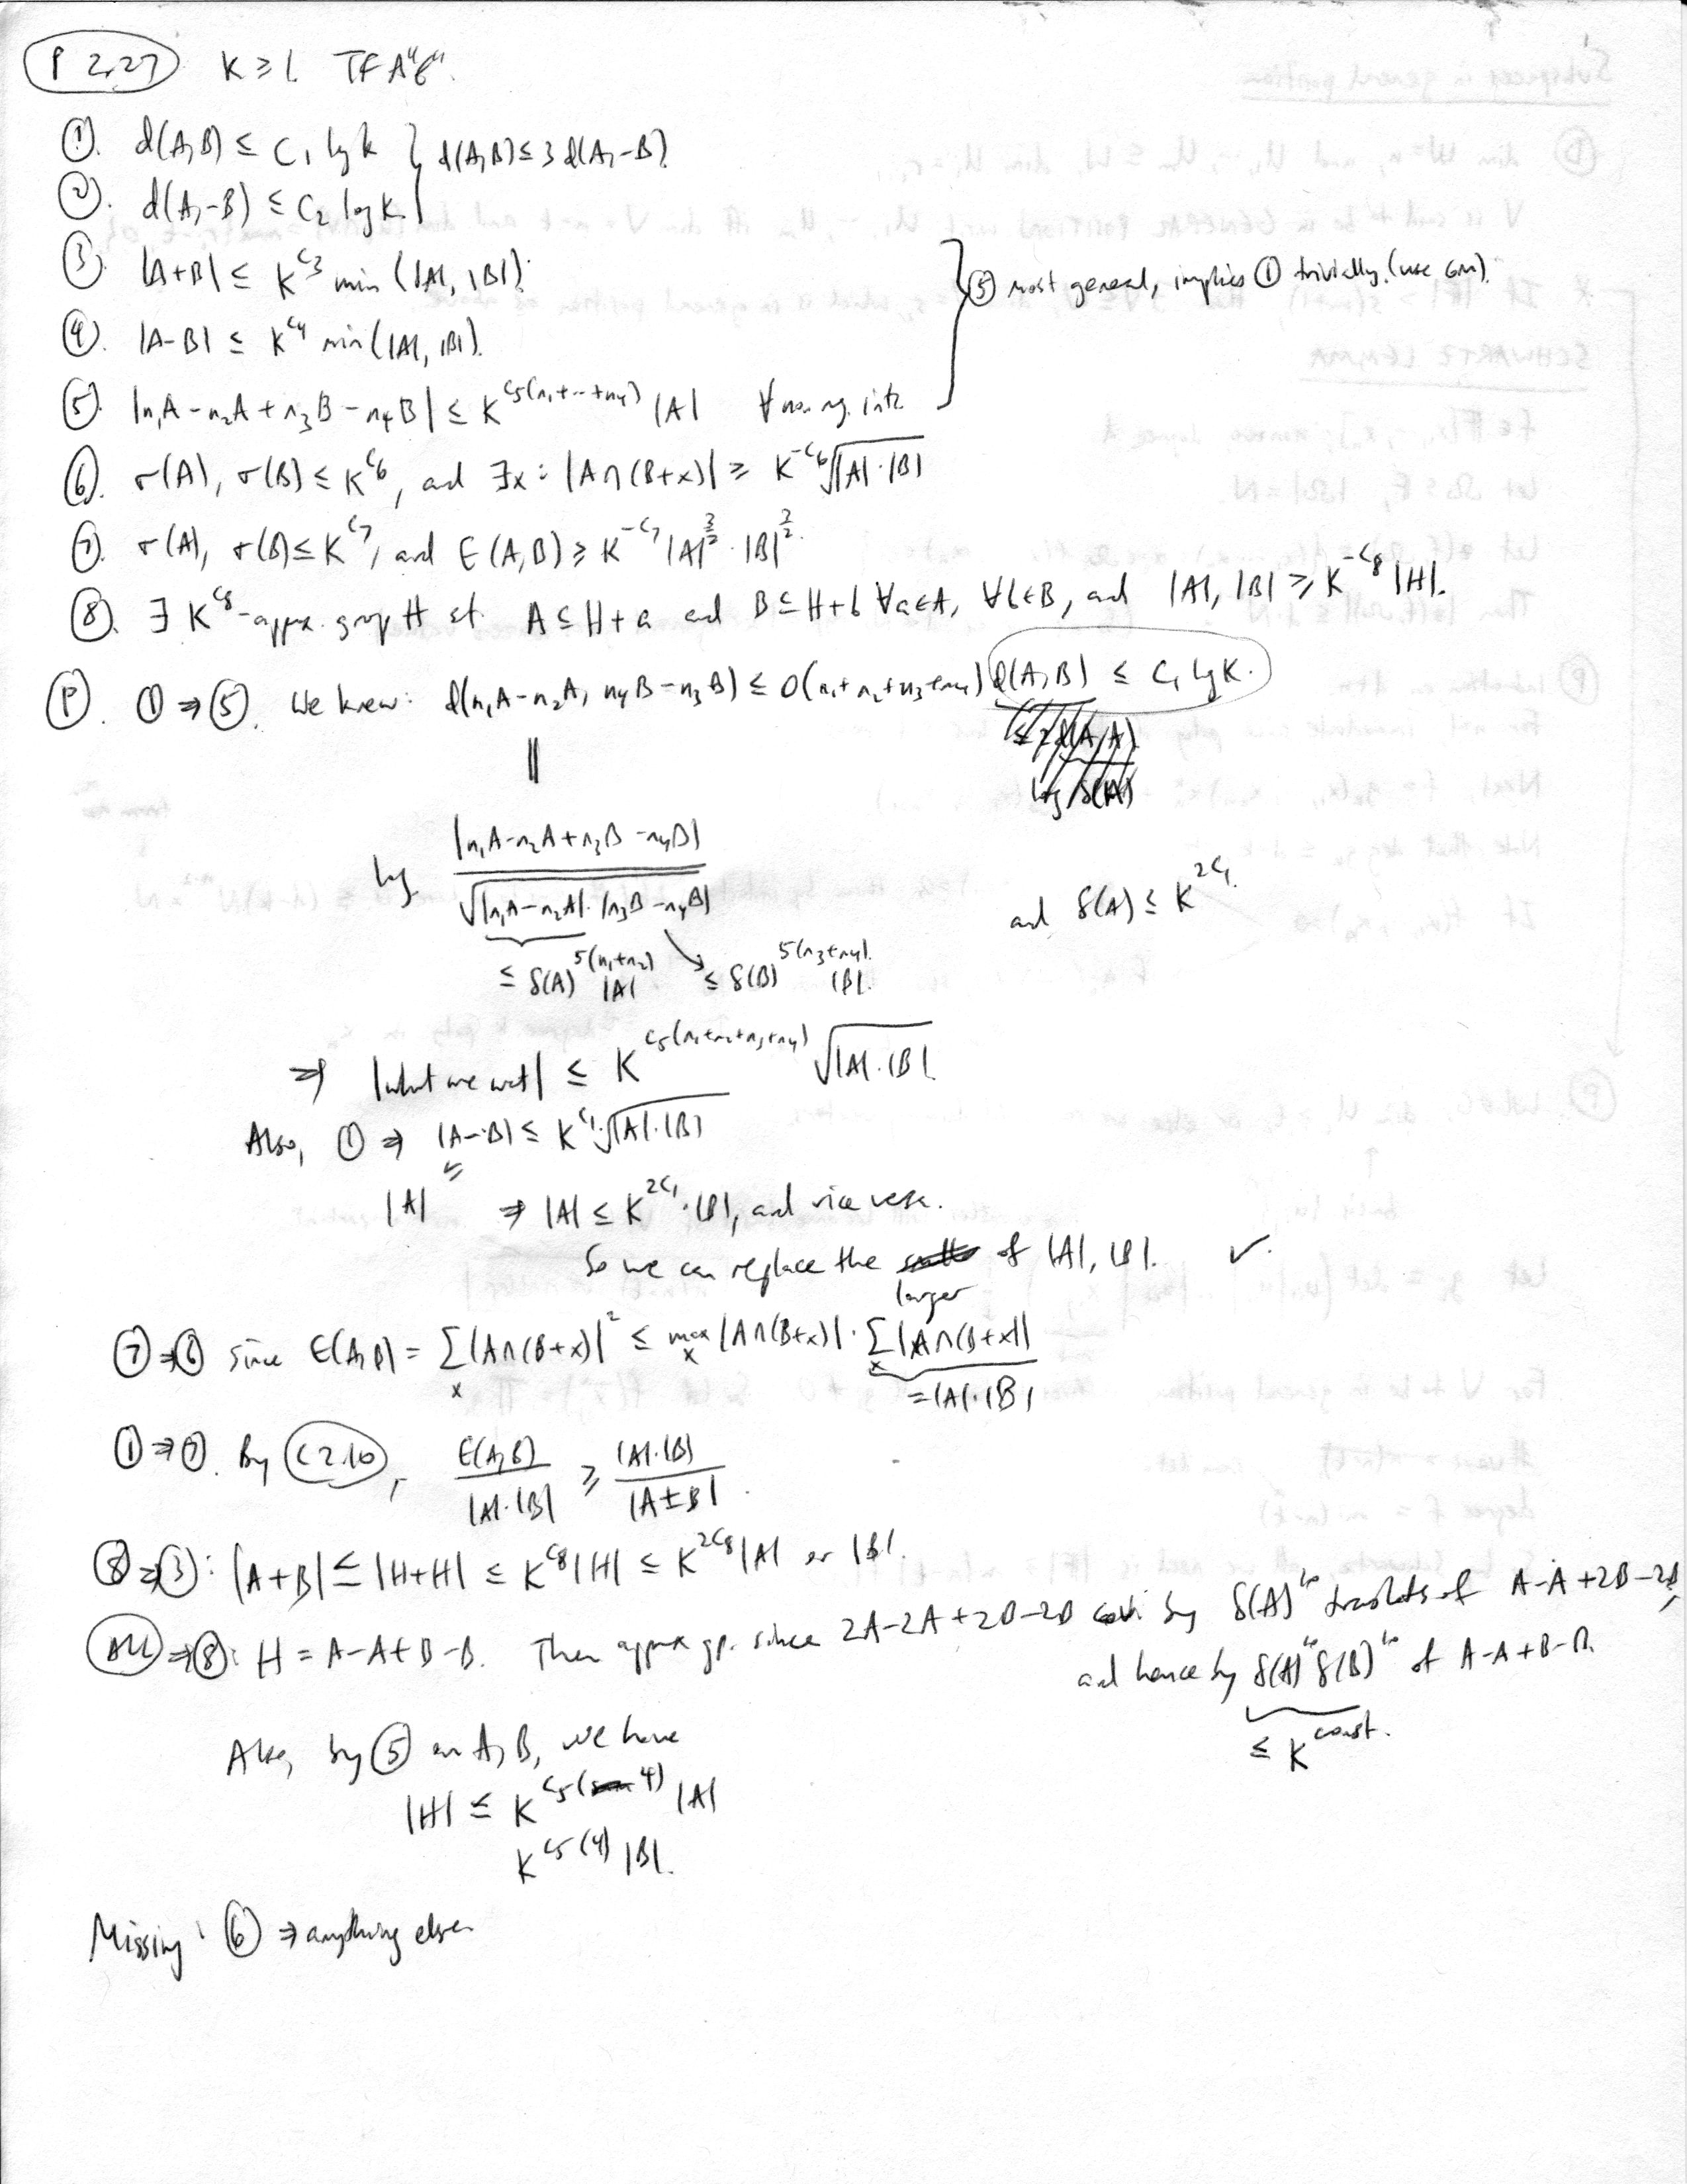 P 2.27 K ≥ 1. TFA"E".
①. d(A,B) ≤ C₁ log K } d(A,B) ≤ 3 d(A,-B).
②. d(A,-B) ≤ C₂ log K.
③. |A+B| ≤ K^{C₃} min(|A|, |B|).
④. |A-B| ≤ K^{C₄} min(|A|, |B|).
⑤. |n₁A - n₂A + n₃B - n₄B| ≤ K^{C₅(n₁+…+n₄)} |A| ∀ nonneg. ints.
} ⑤ most general, implies ① trivially. (use GM).
⑥. σ(A), σ(B) ≤ K^{C₆}, and ∃x: |A∩(B+x)| ≥ K^{-C₆} √(|A|·|B|)
⑦. σ(A), σ(B) ≤ K^{C₇}, and E(A,B) ≥ K^{-C₇} |A|^{3/2} · |B|^{3/2}.
⑧. ∃ K^{C₈}-approx. group H st. A ⊆ H+a and B ⊆ H+b ∀a∈A, ∀b∈B, and |A|, |B| ≥ K^{-C₈} |H|.
Ⓟ. ① ⇒ ⑤. We know: d(n₁A - n₂A, n₄B - n₃B) ≤ O(n₁+n₂+n₃+n₄) d(A,B) ≤ C₁ log K.
||
log |n₁A - n₂A + n₃B - n₄B| / √(|n₁A - n₂A| · |n₃B - n₄B|)
and δ(A) ≤ K^{2C₁}.
≤ δ(A)^{5(n₁+n₂)} |A| ≤ δ(B)^{5(n₃+n₄)} |B|.
⇒ |what we want| ≤ K^{C₅(n₁+n₂+n₃+n₄)} √(|A|·|B|.
Also, ① ⇒ |A-B| ≤ K^{C₁} √(|A|·|B|)
|A| ⇒ |A| ≤ K^{2C₁} · |B|, and vice versa.
So we can replace the larger of |A|, |B|. ✓.
⑦⇒⑥ since E(A,B) = Σ_x |A∩(B+x)|² ≤ max_x |A∩(B+x)| · Σ_x |A∩(B+x)|
= |A|·|B|
①⇒⑦. By C 2.10, E(A,B) / |A|·|B| ≥ |A|·|B| / |A±B|.
⑧⇒③: |A+B| ≤ |H+H| ≤ K^{C₈} |H| ≤ K^{2C₈} |A| or |B|.
ALL ⇒⑧: H = A-A+B-B. Then approx gp. since 2A-2A+2B-2B cov. by δ(A)^{to} translates of A-A+2B-2B,
and hence by δ(A)^{to} δ(B)^{to} of A-A+B-B.
≤ K^{const.}
Also, by ⑤ on A, B, we have
|H| ≤ K^{C₅(4)} |A|
K^{C₅(4)} |B|.
Missing: ⑥ ⇒ anything else.